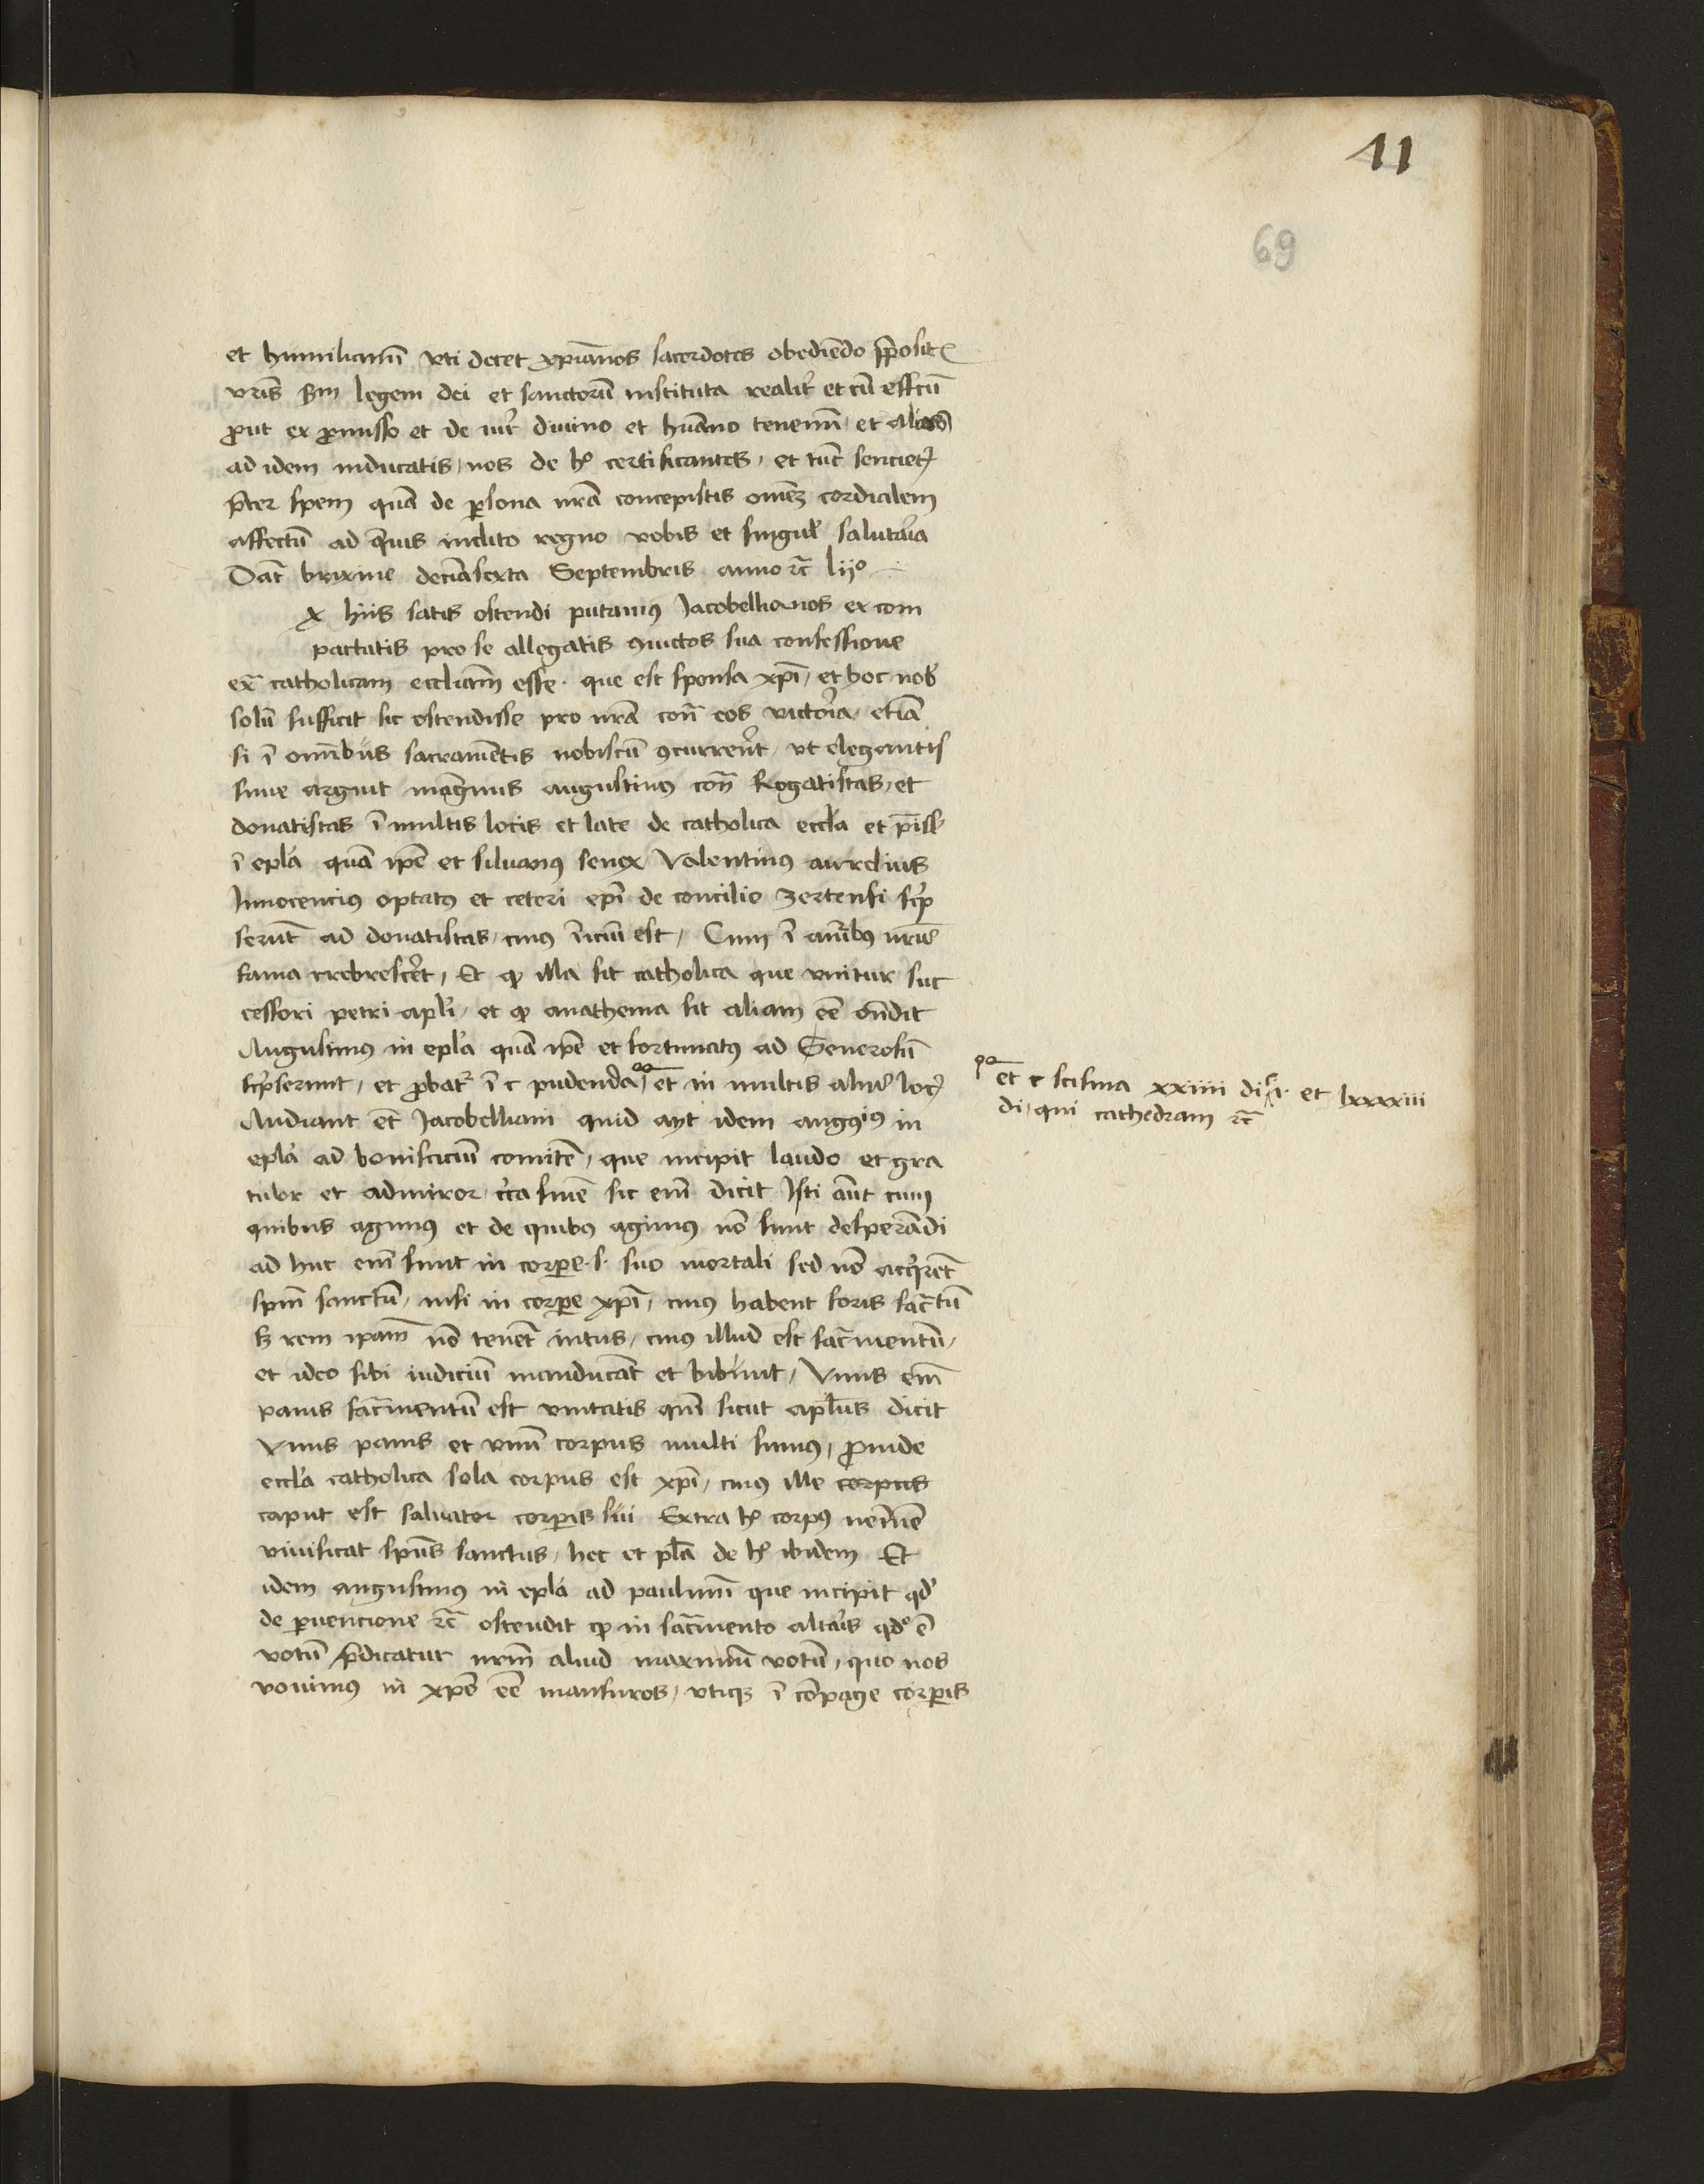 11
69
et humiliamī vti decet xpianos sacerdotes obediēdo p̄posit
vris scdm legem dei et sanctorū instituta realit̄ et cū effectū
prout ex promisso et de iur̄ diuino et humano tenemī et alios
ad idem inducatis, nos de hoc certificantes, et tūc sencietꝭ
p̄ter spem quā de persona nrā concepistis omēz cordialem
affectū ad queuis inclito regno vobis et singul̄ salutaria
Dat̄ brixine decimasexta Septembris anno ꝛc̄ lijº
Ex hiis satis ostendi putamꝰ Jacobellianos ex com
pactatis pro se allegatis ꝯuictos sua confessione
extra catholicam eccliam esse. que est sponsa xpī, et hoc nob̄
solū sufficit sic ostendisse pro nrā contra eos victoria, etiā
si ī omībus sacramētis nobiscū ꝯcurrerēt, vt elegantis
sime arguit magnus augustinꝰ contra Rogatistas, et
donatistas ī multis locis et late de catholica eccla et p̄ise
ī epla quā ipē et siluanꝰ senex Valentinꝰ aurelius
Innocencius optatꝰ et ceteri epī de concilio zertensi scrip
serūt ad donatistas, cuiꝰ īiciū est, Cum ī aurībꝰ nris
fama crebresceret, Et ꝙ illa sit catholica que vnitur suc
cessori petri apli, et ꝙ anathema sit aliam eē ondit
Augustinus in epla quā ipē et fortunatꝰ ad Generosū
scripserunt, et probat̄ ī c pudenda, et in multis aliis locꝭ
Audiant et̄ Jacobelliani quid ayt idem augꝯiꝰ in
epla ad bonifaciū comitē, que incipit laudo et gra
tulor et admiror circa finē sic enī dicit Isti aūt cum
quibus agimus et de quibꝰ agimus nō sunt desperādi
ad huc enī sunt in corpore .s. suo mortali sed nō acquirēt
spm̄ sanctū, nisi in corpore xpī, cuiꝰ habent foris sacrm̄tū
sꝫ rem ipam nō tenēt intus, cuiꝰ illud est sacramentū,
et ideo sibi iudiciū manducāt et bibūnt, Vnus enī
panis sacramentū est vnitatis qm̄ sicut aplus dicit
Vnus panis et vnū corpus multi sumꝰ, proinde
eccla catholica sola corpus est xpī, cuiꝰ ille corpus
caput est saluator corporis sui Extra hoc corpꝰ neminē
viuificat spus sanctus, hec et pla de hoc ibidem Et
idem augustinus in epla ad paulinū que incipit qd̄
de peruencione ꝛc̄ ostendit ꝙ in sacramento altaris qdº ē
votū p̄dicatur nrm̄ aliud maximū votū, quo nos
vouimꝰ in xpo eē mansuros, vtiqꝫ ī cōpage corporis
et c scisma xxiiii di i. et lxxxxiii
di, qui cathedram ꝛc̄